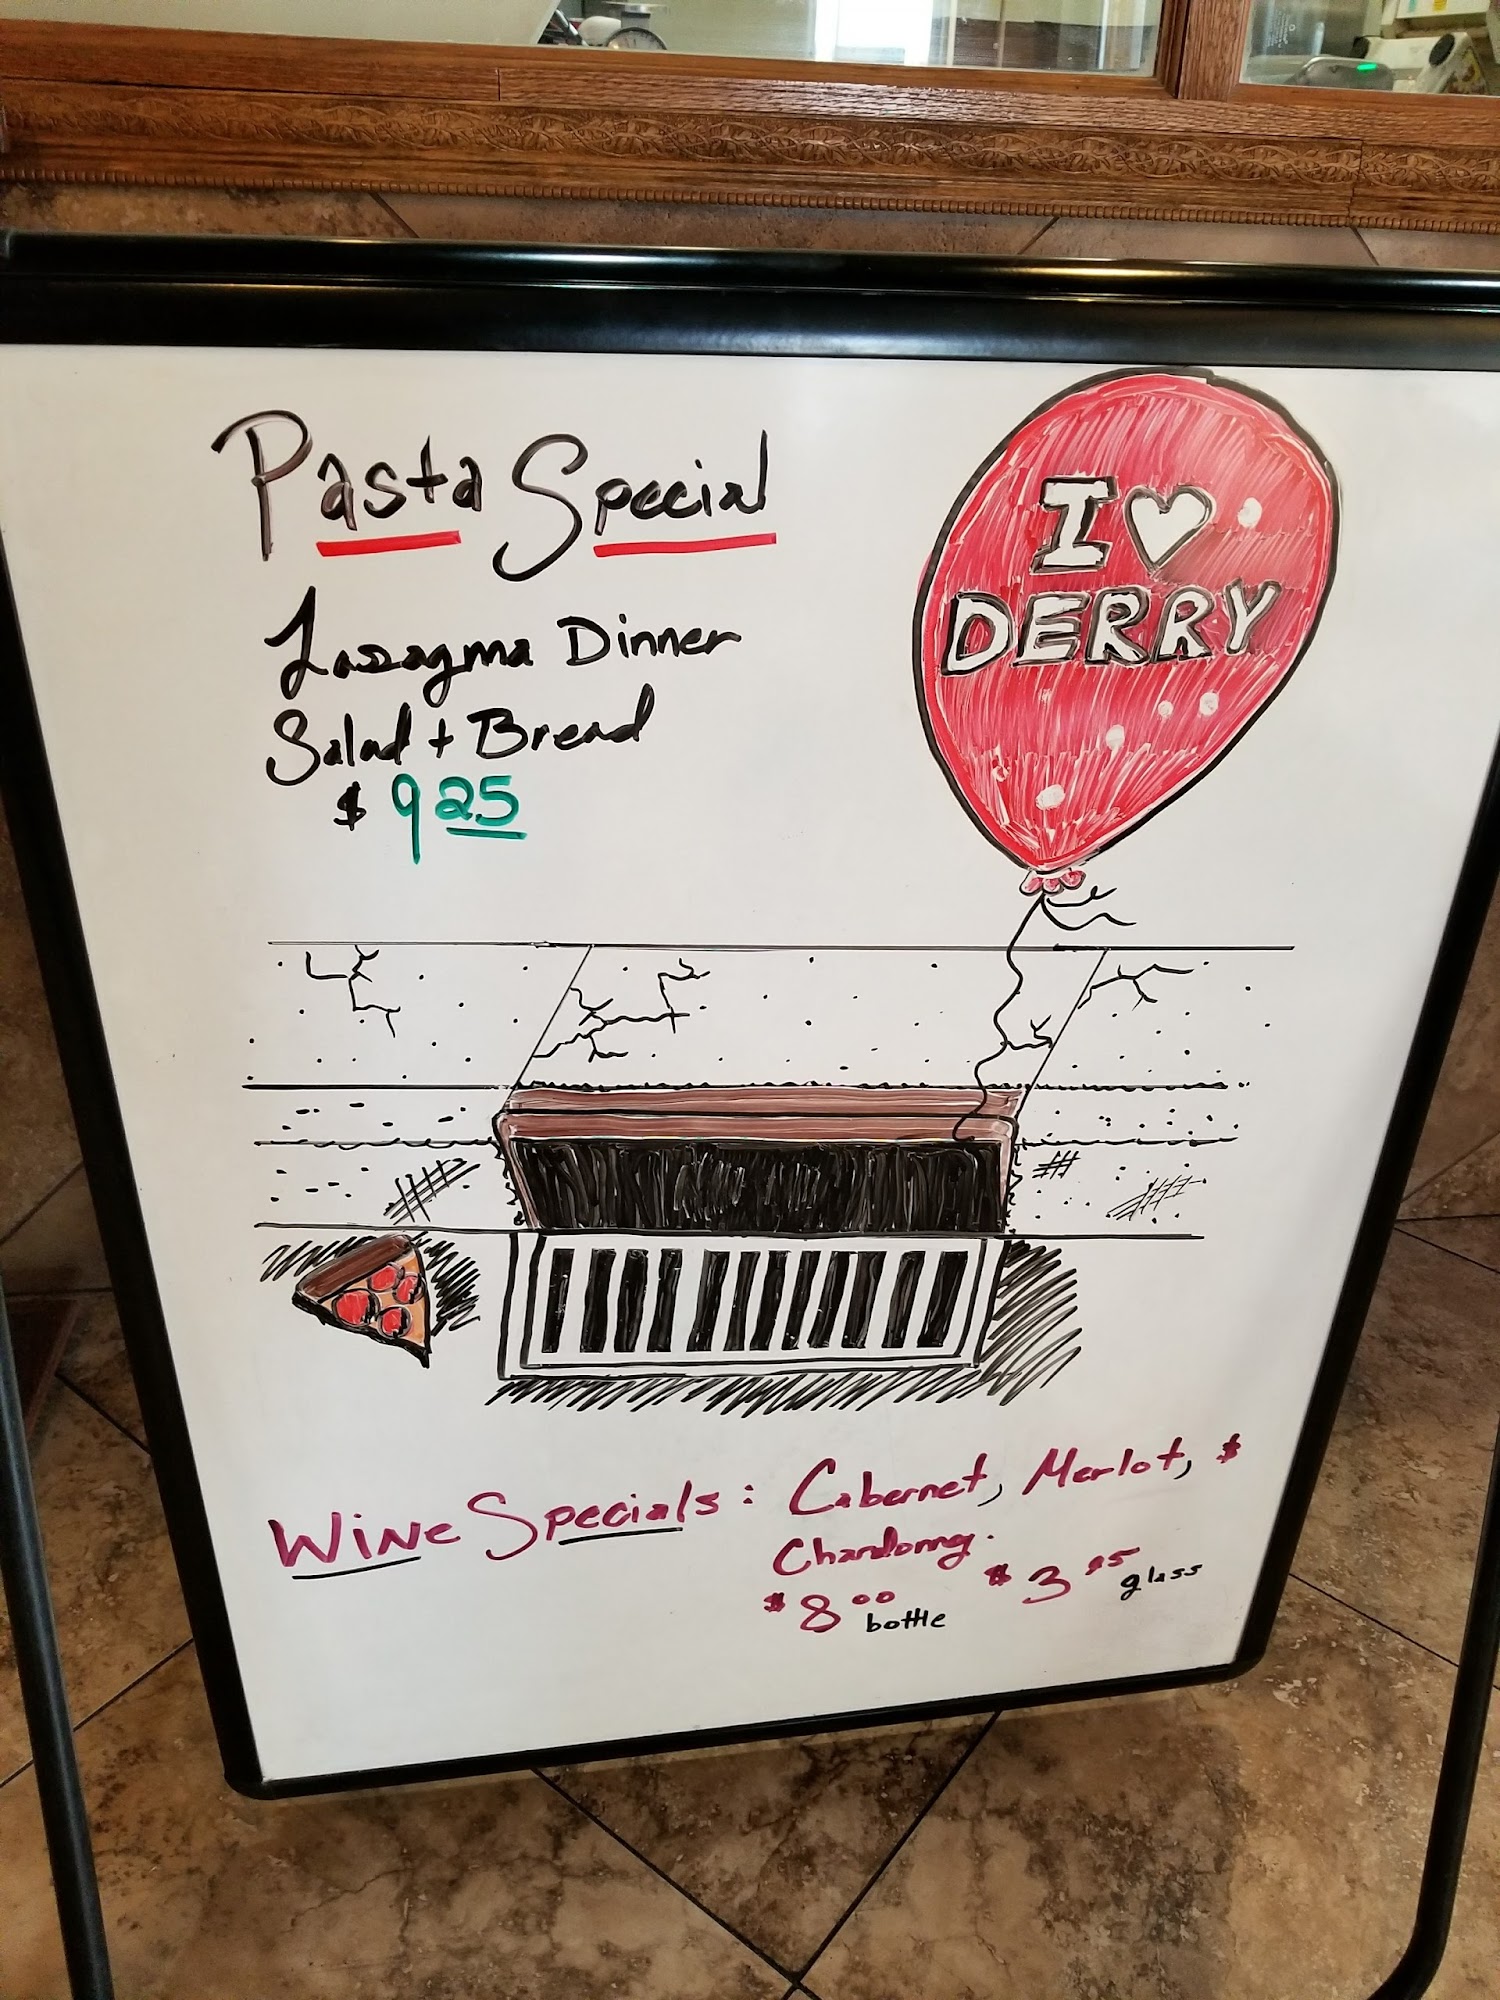 Pasta Special
Lasagna Dinner
Salad + Bread
$ 9 25
I ♥
DERRY
Wine Specials: Cabernet, Merlot, $
Chardonnay.
$8.00 bottle $3 glass